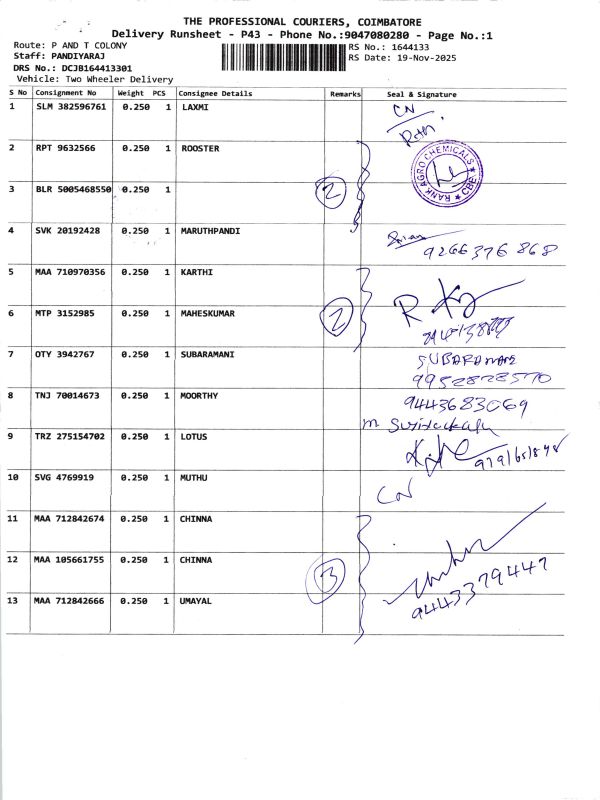 THE PROFESSIONAL COURIERS, COIMBATORE
Delivery Runsheet - P43 - Phone No.:9047080280 - Page No.:1
Route: P AND T COLONY
Staff: PANDIYARAJ
DRS No.: DCJB164413301
Vehicle: Two Wheeler Delivery
RS No.: 1644133
RS Date: 19-Nov-2025
S No Consignment No Weight PCS Consignee Details Remarks Seal & Signature
1 SLM 382596761 0.250 1 LAXMI CN
2 RPT 9632566 0.250 1 ROOSTER
RANK AGRO CHEMICALS ★ CBE ★
3 BLR 5005468550 0.250 1 2
4 SVK 20192428 0.250 1 MARUTHPANDI
9266376868
5 MAA 710970356 0.250 1 KARTHI
6 MTP 3152985 0.250 1 MAHESKUMAR 2 R
7 OTY 3942767 0.250 1 SUBARAMANI SUBARAMANI
9952828570
8 TNJ 70014673 0.250 1 MOORTHY 9443683069
9 TRZ 275154702 0.250 1 LOTUS
10 SVG 4769919 0.250 1 MUTHU CN
11 MAA 712842674 0.250 1 CHINNA
12 MAA 105661755 0.250 1 CHINNA 3
13 MAA 712842666 0.250 1 UMAYAL 9443379447